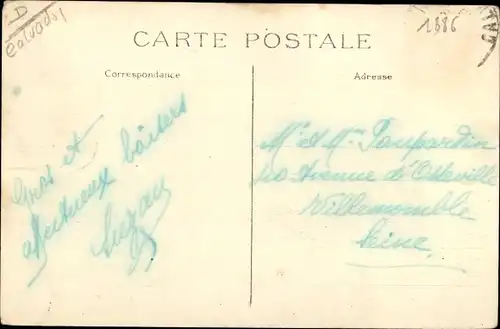 D
Calvados
1886
CARTE POSTALE
Correspondance
Adresse
Gros et
affectueux baisers
Suzan
Mr et Mme Poupardin
Avenue d'Osseville
Villemomble
Seine